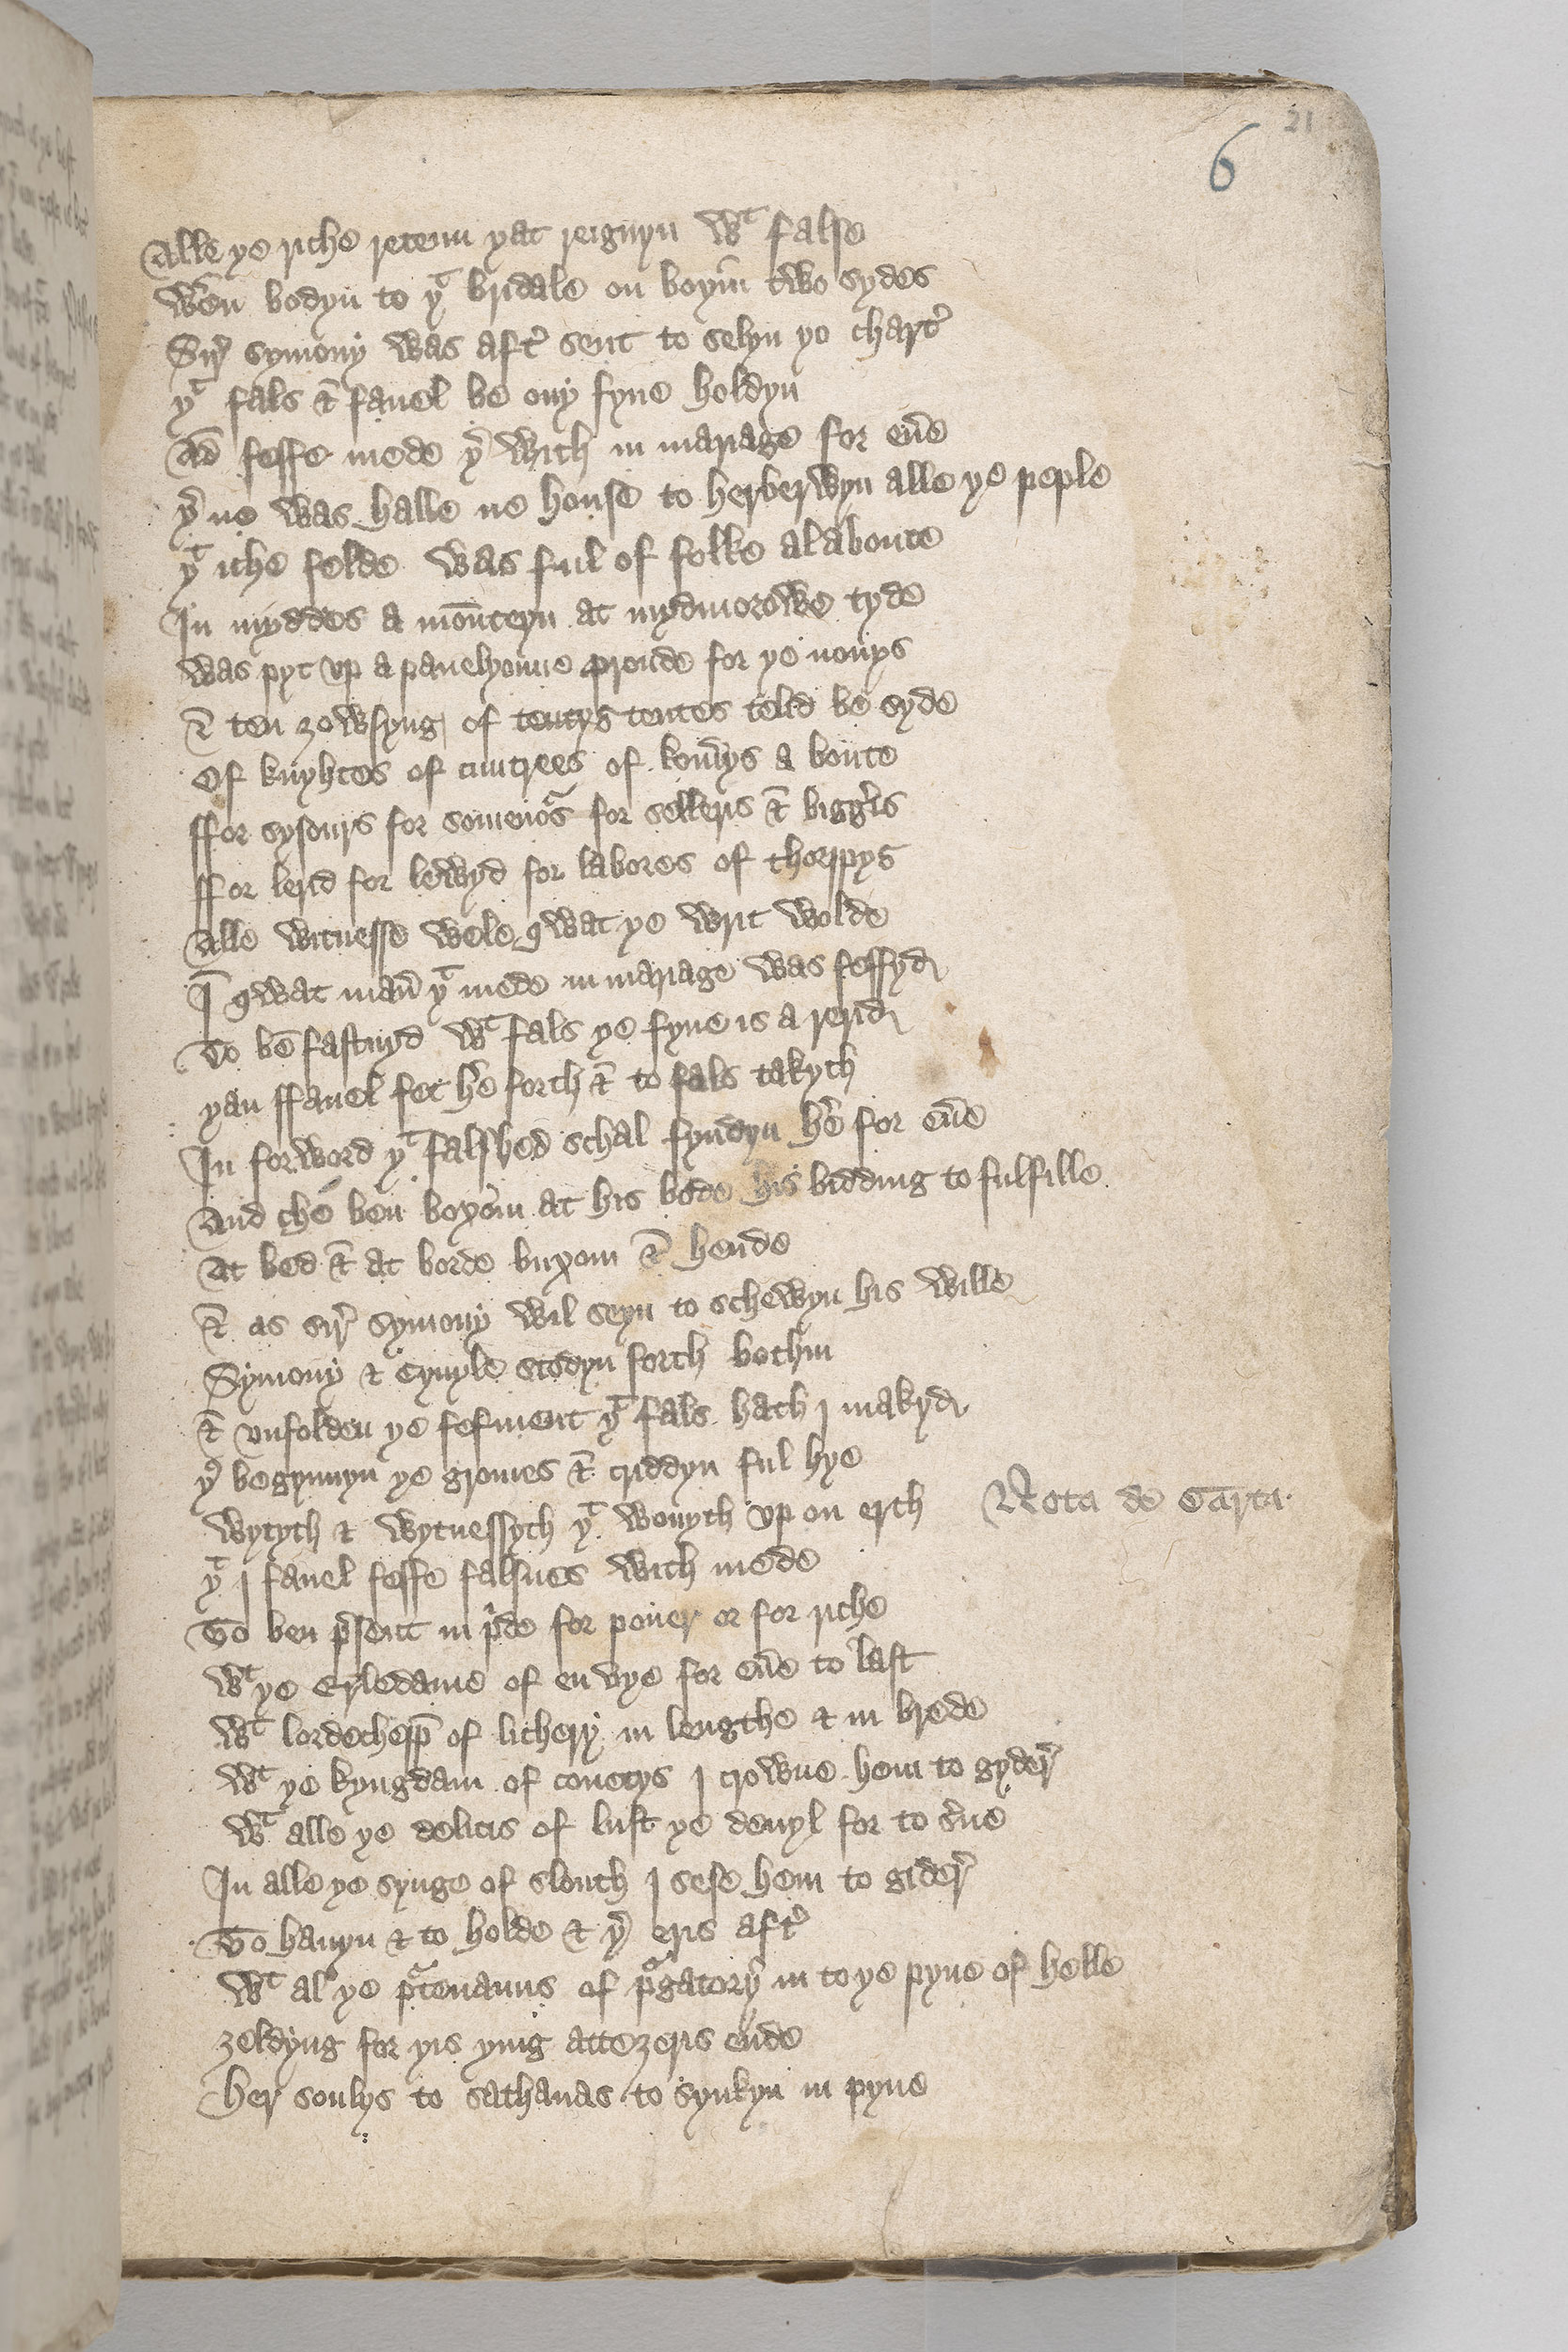 21
6
Alle ye riche retenu yat reignyn wt false
weren bodyn to yt bridale on boyin two sydes
Sir symony was aftir sent to selyn ye chartir
yt fals & fauel be ony fyne holdyn
And feffe mede yer with in mariage for euer
yer ne was halle ne house to herberwyn alle ye peple
yt iche felde was ful of folke al aboute
In myddes a mounteyn at mydmorowe tyde
was pyt vp a pauelyoune proude for ye nonys
& ten zowsyng of tentys tentes telld be syde
Of knyhtes of cuntrees of komerys a boute
ffor sysours for somenours for selleris & biggeris
ffor lerid for lewyd for labores of thorppys
Alle witnesse wele qwat ye writ wolde
In qwat maner yt mede in mariage was feffyd
To be fastnyd wt fals ye fyne is a rerid
yan ffauel fet her forth & to fals takyth
In forword yt falshed schal fyndyn her for euer
And che ben boxom at his bode his bidding to fulfille
At bed & at borde buxom & hende
& as sir symony wil seyn to schewyn his wille
Symony & Cyuyle stodyn forth bothyn
& vnfolden ye fefment yt fals hath I makyd
yer begynnyn ye gromes & criddyn ful hye
wytyth & wytnessyth yt wonyth vp on erth
Nota de Carta
yt I fauel feffe falsnes with mede
To ben present in pride for pouer or for riche
wt ye Erledame of en vye for euer to last
wt lordechepp of lichery in lengthe & in brede
wt ye kyngdam of couetys I crowne hem to gyder
wt alle ye delicis of lust ye deuyl for to serue
In alle ye synge of slouth I sese hem to gider
To hauyn & to holde & yer eris aftir
wt al ye purtenauns of purgatory in to ye pyne of helle
zeldyng for yis ying atte zeris ende
Her soulys to sathanas to synkyn in pyne